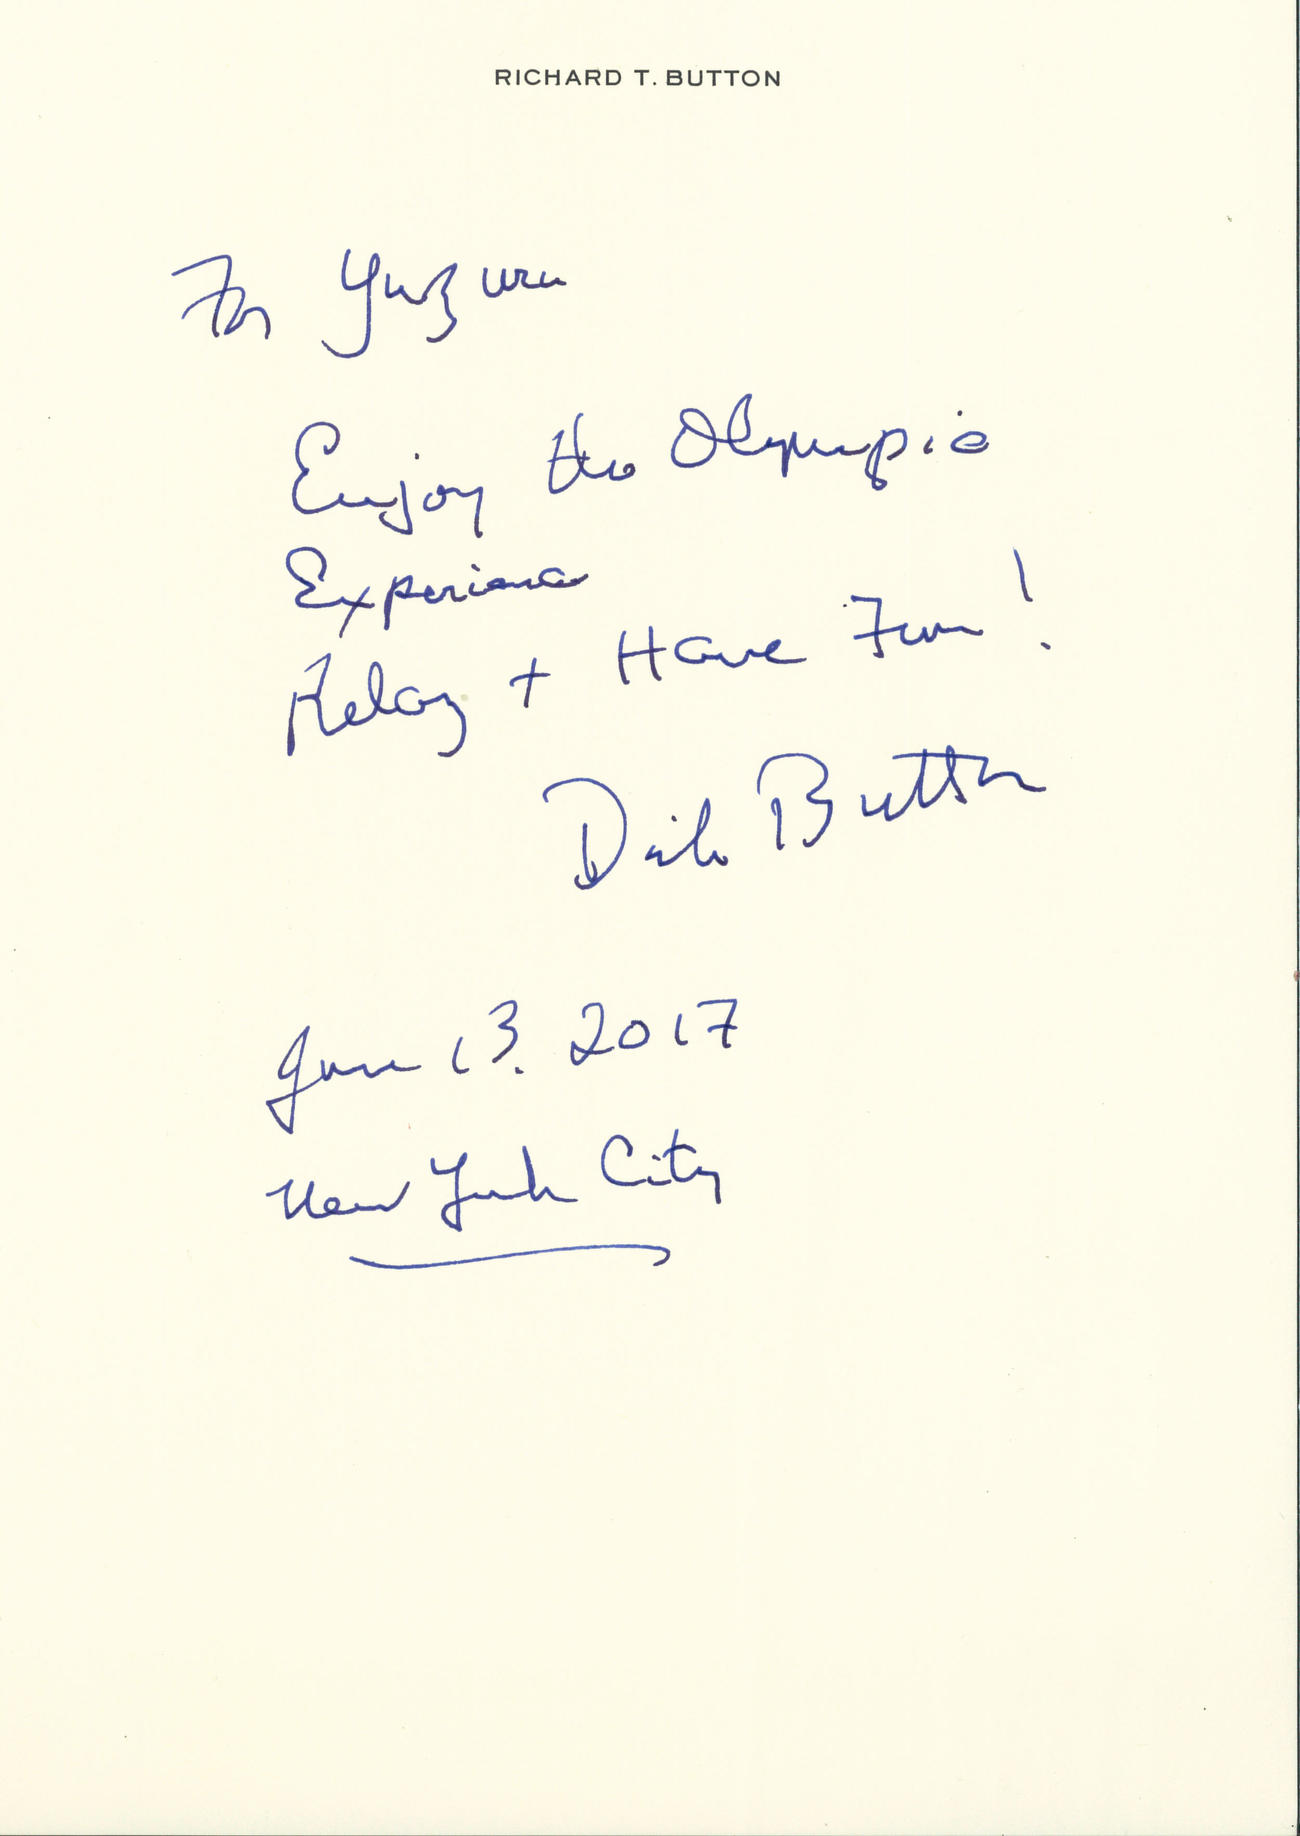 RICHARD T. BUTTON
For Yuzuru
Enjoy the Olympic
Experience
Relax + Have Fun!
Dick Button
June 13. 2017
New York City